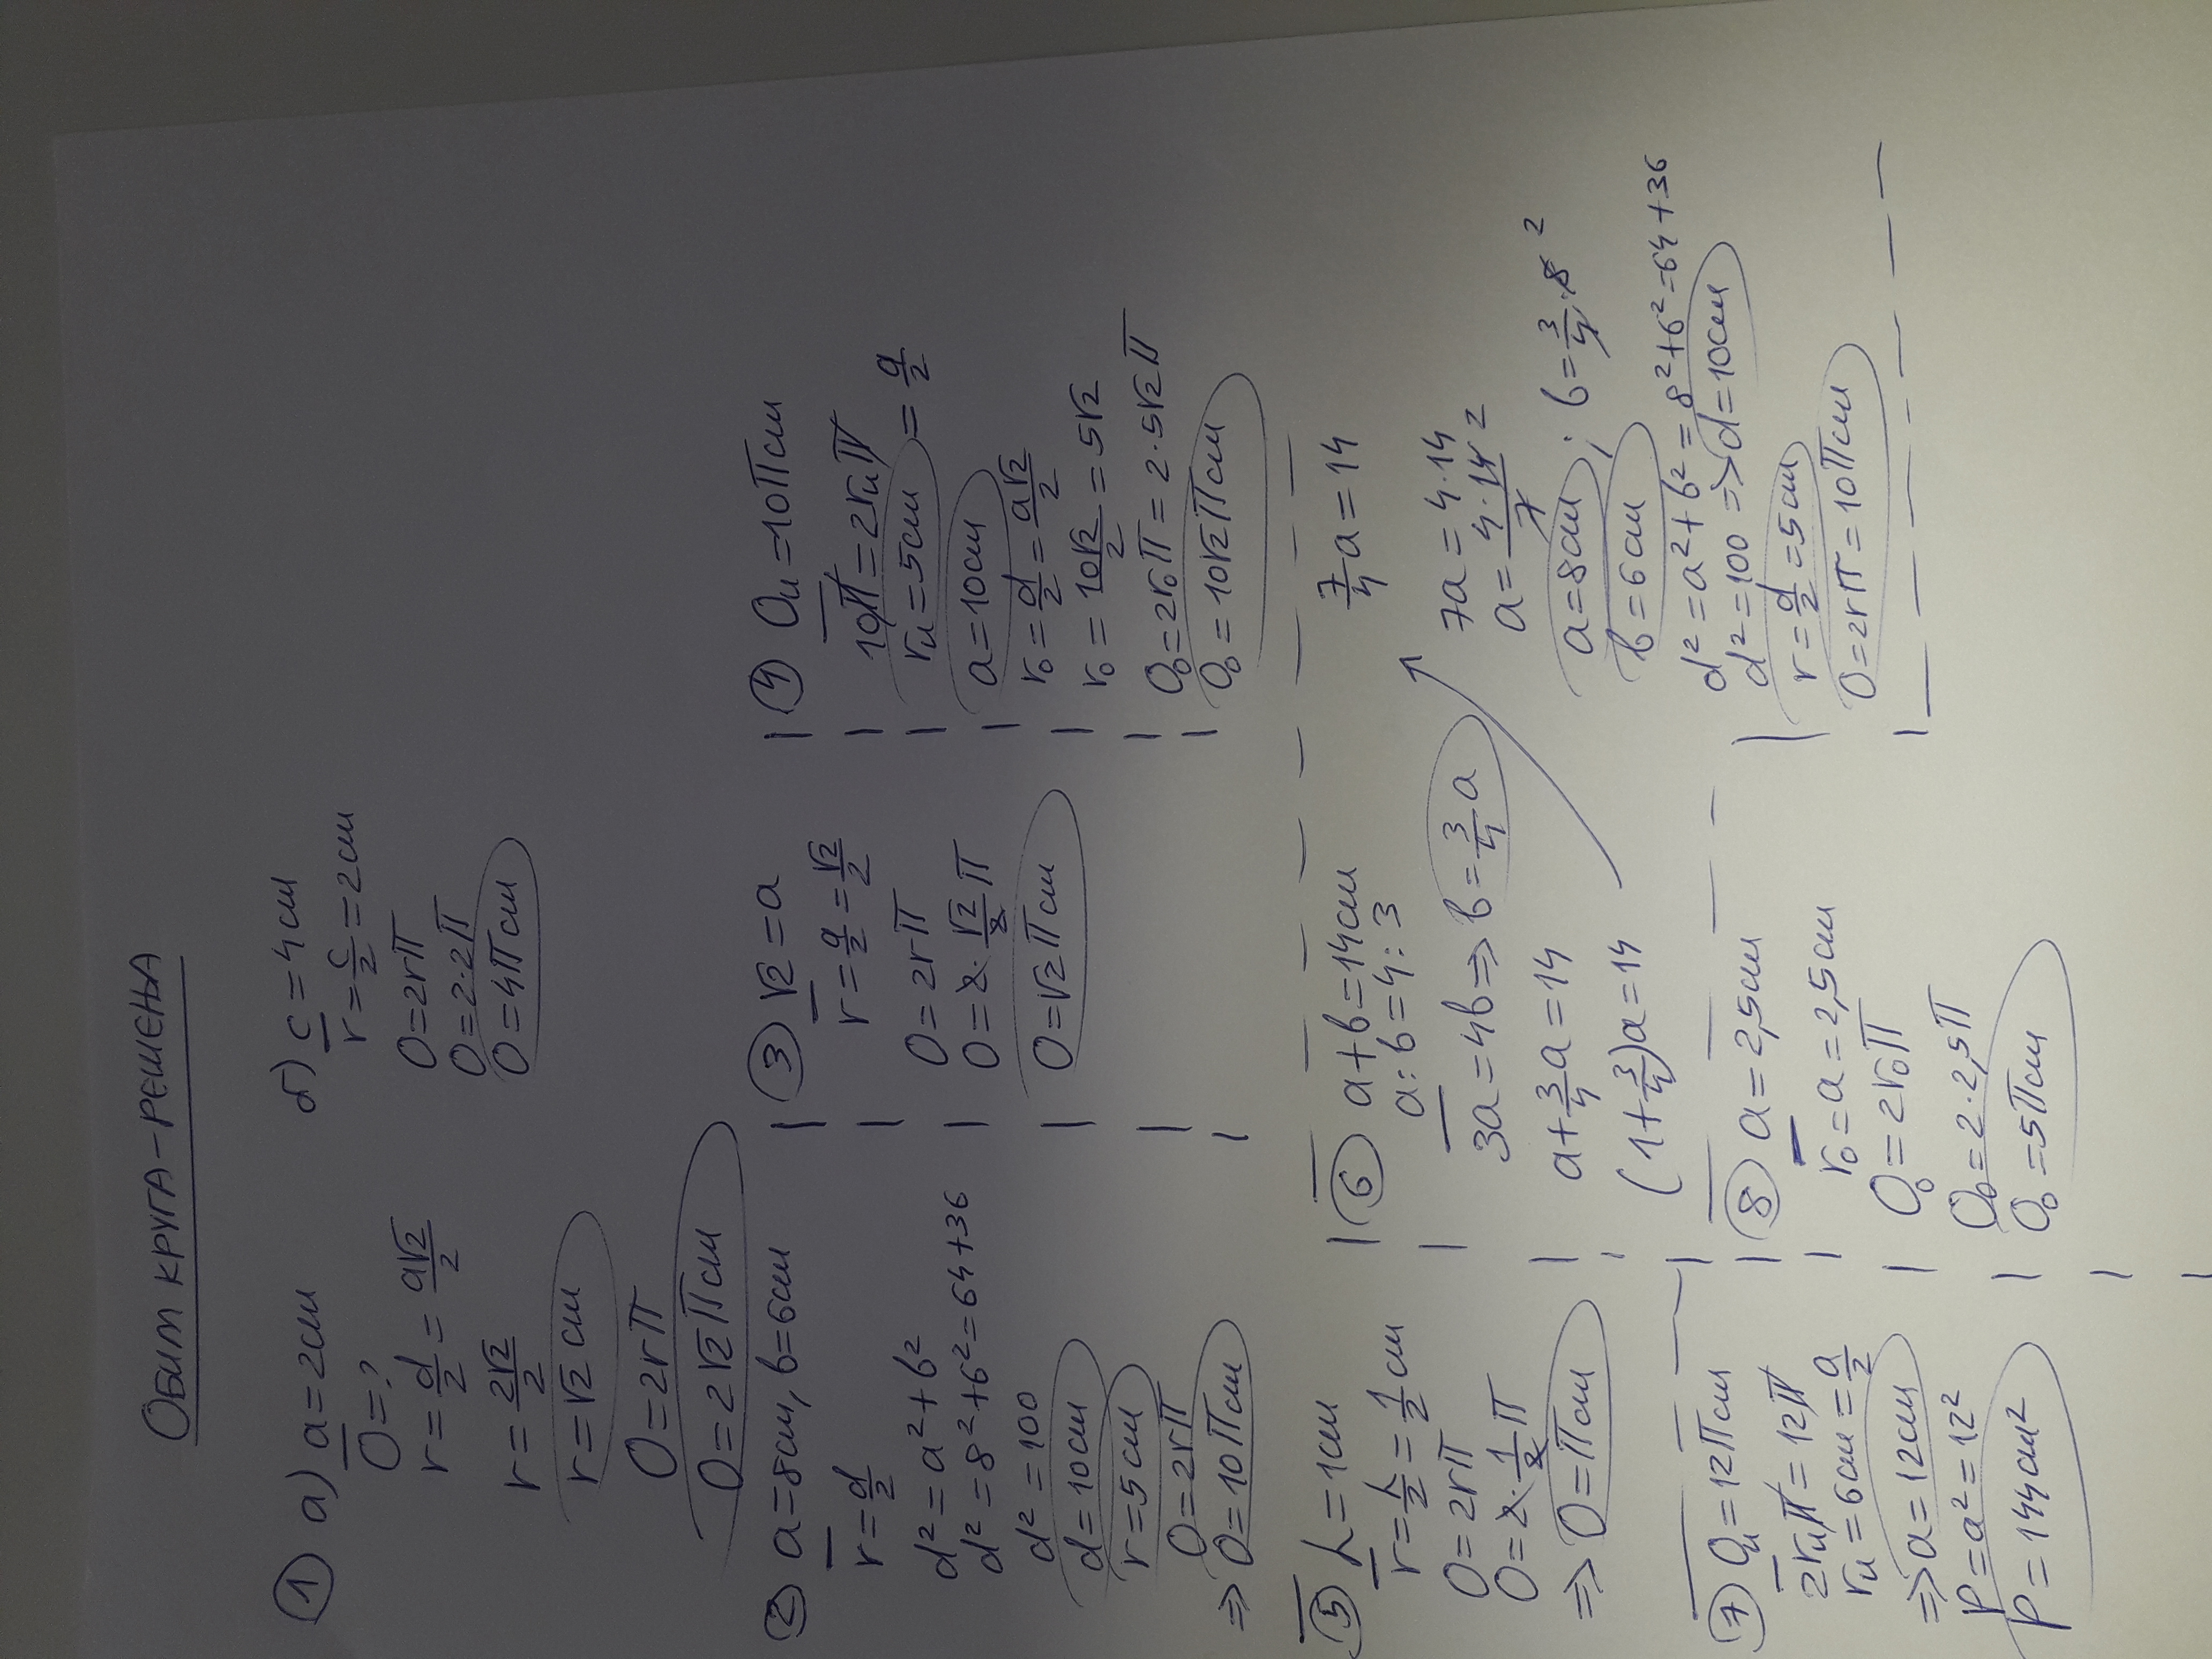 ОБИМ КРУГА-РЕШЕЊА
① а) a=2cm
O=?
r=d/2=a√2/2
r=2√2/2
r=√2 cm
O=2rπ
O=2√2πcm
б) c=4cm
r=c/2=2cm
O=2rπ
O=2·2π
O=4πcm
② a=8cm, b=6cm
r=d/2
d²=a²+b²
d²=8²+6²=64+36
d²=100
d=10cm
r=5cm
O=2rπ
⇒ O=10πcm
③ √2=a
r=a/2=√2/2
O=2rπ
O=2·√2/2π
O=√2πcm
④ Oᵤ=10πcm
10π=2rᵤπ
rᵤ=5cm=a/2
a=10cm
r₀=d/2=a√2/2
r₀=10√2/2=5√2
O₀=2r₀π=2·5√2π
O₀=10√2πcm
⑤ h=1cm
r=h/2=1/2cm
O=2rπ
O=2·1/2π
⇒ O=πcm
⑥ a+b=14cm
a:b=4:3
3a=4b⇒b=3/4a
a+3/4a=14
(1+3/4)a=14
7/4a=14
7a=4·14
a=4·14/7 2
a=8cm; b=3/4·8 2
b=6cm
d²=a²+b²=8²+6²=64+36
d²=100⇒d=10cm
r=d/2=5cm
O=2rπ=10πcm
⑦ Oᵤ=12πcm
2rᵤπ=12π
rᵤ=6cm=a/2
⇒a=12cm
P=a²=12²
P=144cm²
⑧ a=2,5cm
r₀=a=2,5cm
O₀=2r₀π
O₀=2·2,5π
O₀=5πcm